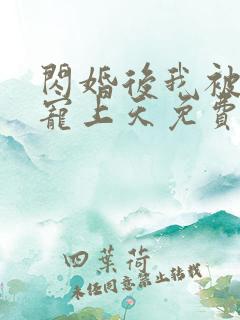 閃婚後我被
寵上天免費
四葉荷
未任同意禁止轉載